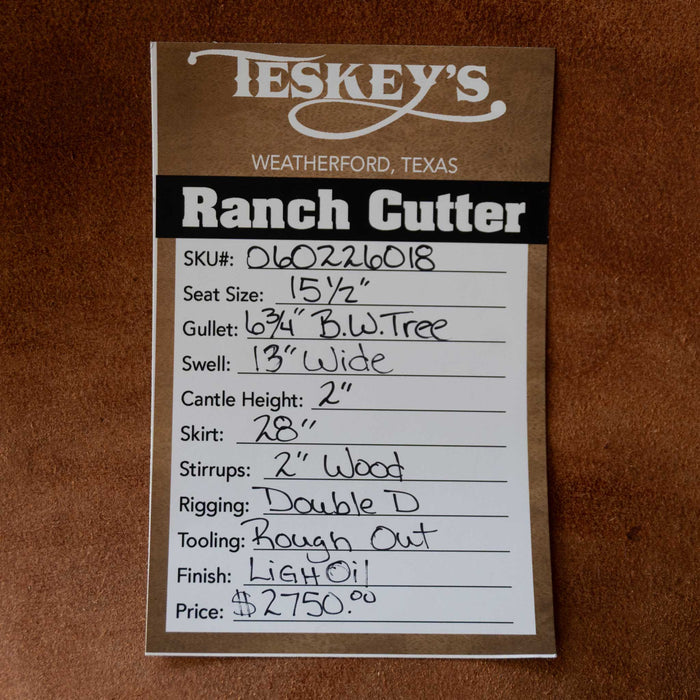 TESKEY'S
WEATHERFORD, TEXAS
Ranch Cutter
SKU#: 060226018
Seat Size: 15 1/2"
Gullet: 6 3/4" B.W. Tree
Swell: 13" Wide
Cantle Height: 2"
Skirt: 28"
Stirrups: 2" Wood
Rigging: Double D
Tooling: Rough Out
Finish: LigH Oil
Price: $2750.00